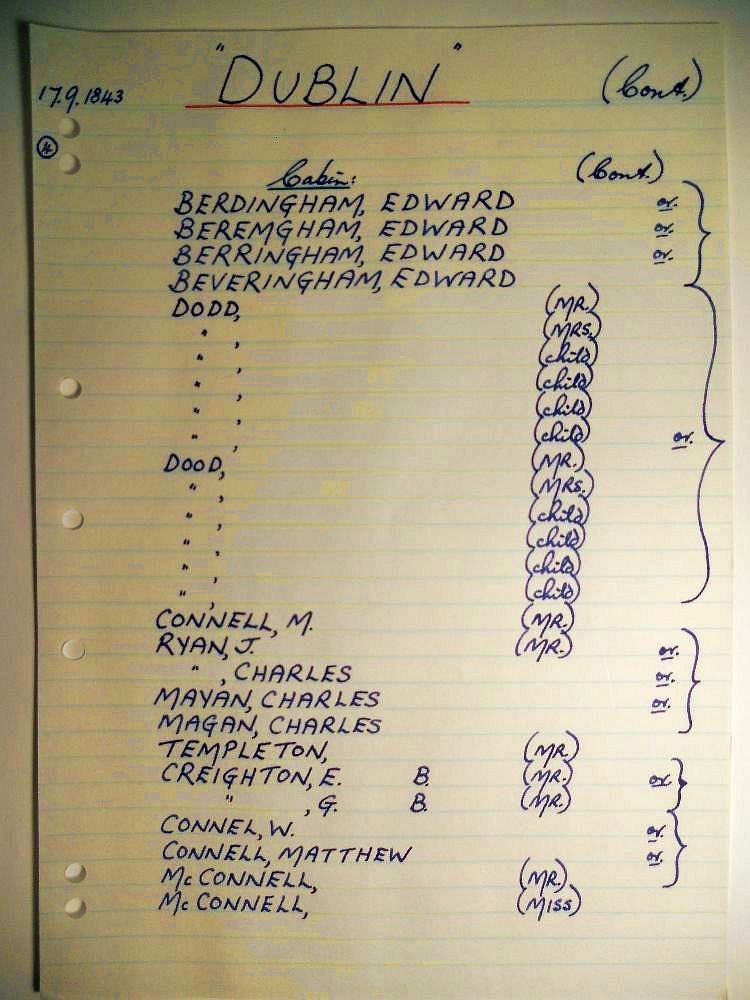 17.9.1843 "DUBLIN" (Cont.)
4
Cabin: (Cont.)
BERDINGHAM, EDWARD or.
BEREMGHAM, EDWARD or.
BERRINGHAM, EDWARD or.
BEVERINGHAM, EDWARD
DODD, (MR.)
" , (MRS.)
" , (child)
" , (child)
" , (child)
" , (child) or.
DOOD, (MR.)
" , (MRS.)
" , (child)
" , (child)
" , (child)
" , (child)
CONNELL, M. (MR.)
RYAN, J. (MR.) or.
" , CHARLES or.
MAYAN, CHARLES or.
MAGAN, CHARLES
TEMPLETON, (MR.)
CREIGHTON, E. B. (MR.) or.
" , G. B. (MR.)
CONNEL, W. or.
CONNELL, MATTHEW or.
McCONNELL, (MR.)
McCONNELL, (MISS)